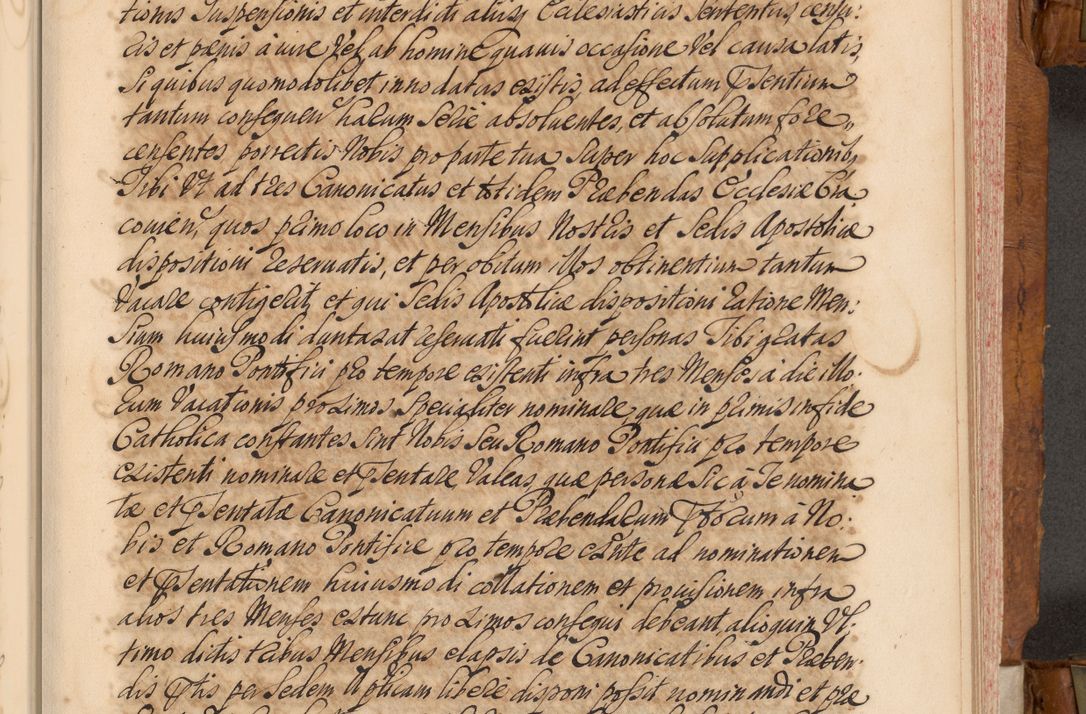 tionis suspensionis et interdicti alijsq Ecclesiasticis sententijs censu:
ris et pænis à iure Vel ab homine quauis occasione Vel causa latis,
si quibus quomodolibet innodatus existis, ad effectum p̄sentium
tantum consequen̄ harum serie absoluentes, et absolutum fore,,
censentes porrectis Nobis pro parte tua super hoc supplicationibq
Tibi Vt ad tres Canonicatus et totidem Præbendas Ecclesiæ Cra
couien̄, quos primo loco in Mensibus Nostris et Sedis Apostolicæ
dispositioni reseruatis, et per obitum illos obtinentium tantum
Vacare contigerit, et qui Sedis Apostolicæ dispositioni ratione Men:
sium huiusmodi duntaxat reseruati fuerint personas Tibi gratas
Romano Pontifici pro tempore existenti infra tres Menses à die illo:
rum Vacationis proximos specialiter nominare quæ in primis in fide
Catholica constantes sint Nobis seu Romano Pontifici pro tempore
existenti nominare et p̄sentare Valeas, quæ personæ sic à Te nomina
tæ et p̄sentatæ Canonicatuum et Præbendarum p̄ttorum à No:
bis et Romano Pontifice pro tempore exn̄te ad nominationem
et p̄sentationem huiusmodi collationem et prouisionem infra
alios tres Menses extunc proximos consequi debeant, alioquin Vl:
timo dictis tribus Mensibus elapsis de Canonicatibus et Præben:
dis p̄ttis per Sedem Aplicam liberè disponi possit nominandi et præ